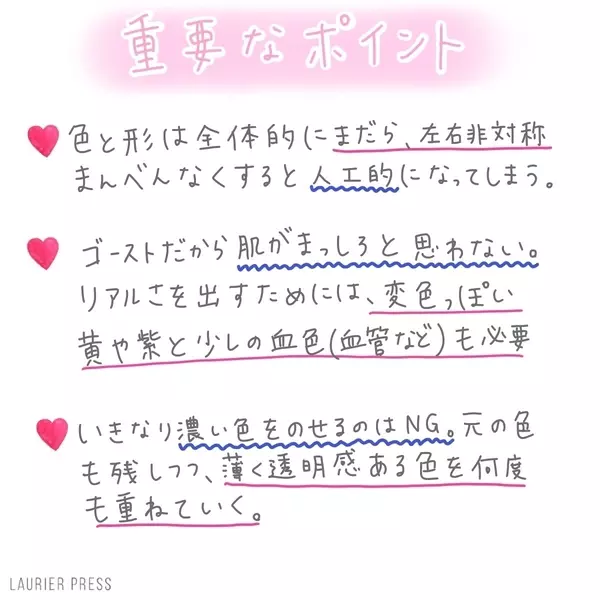 重要なポイント
色と形は全体的にまだら、左右非対称
まんべんなくすると人工的になってしまう。
ゴーストだから肌がまっしろと思わない。
リアルさを出すためには、変色っぽい
黄や紫と少しの血色(血管など)も必要
いきなり濃い色をのせるのはNG。元の色
も残しつつ、薄く透明感ある色を何度
も重ねていく。
LAURIER PRESS